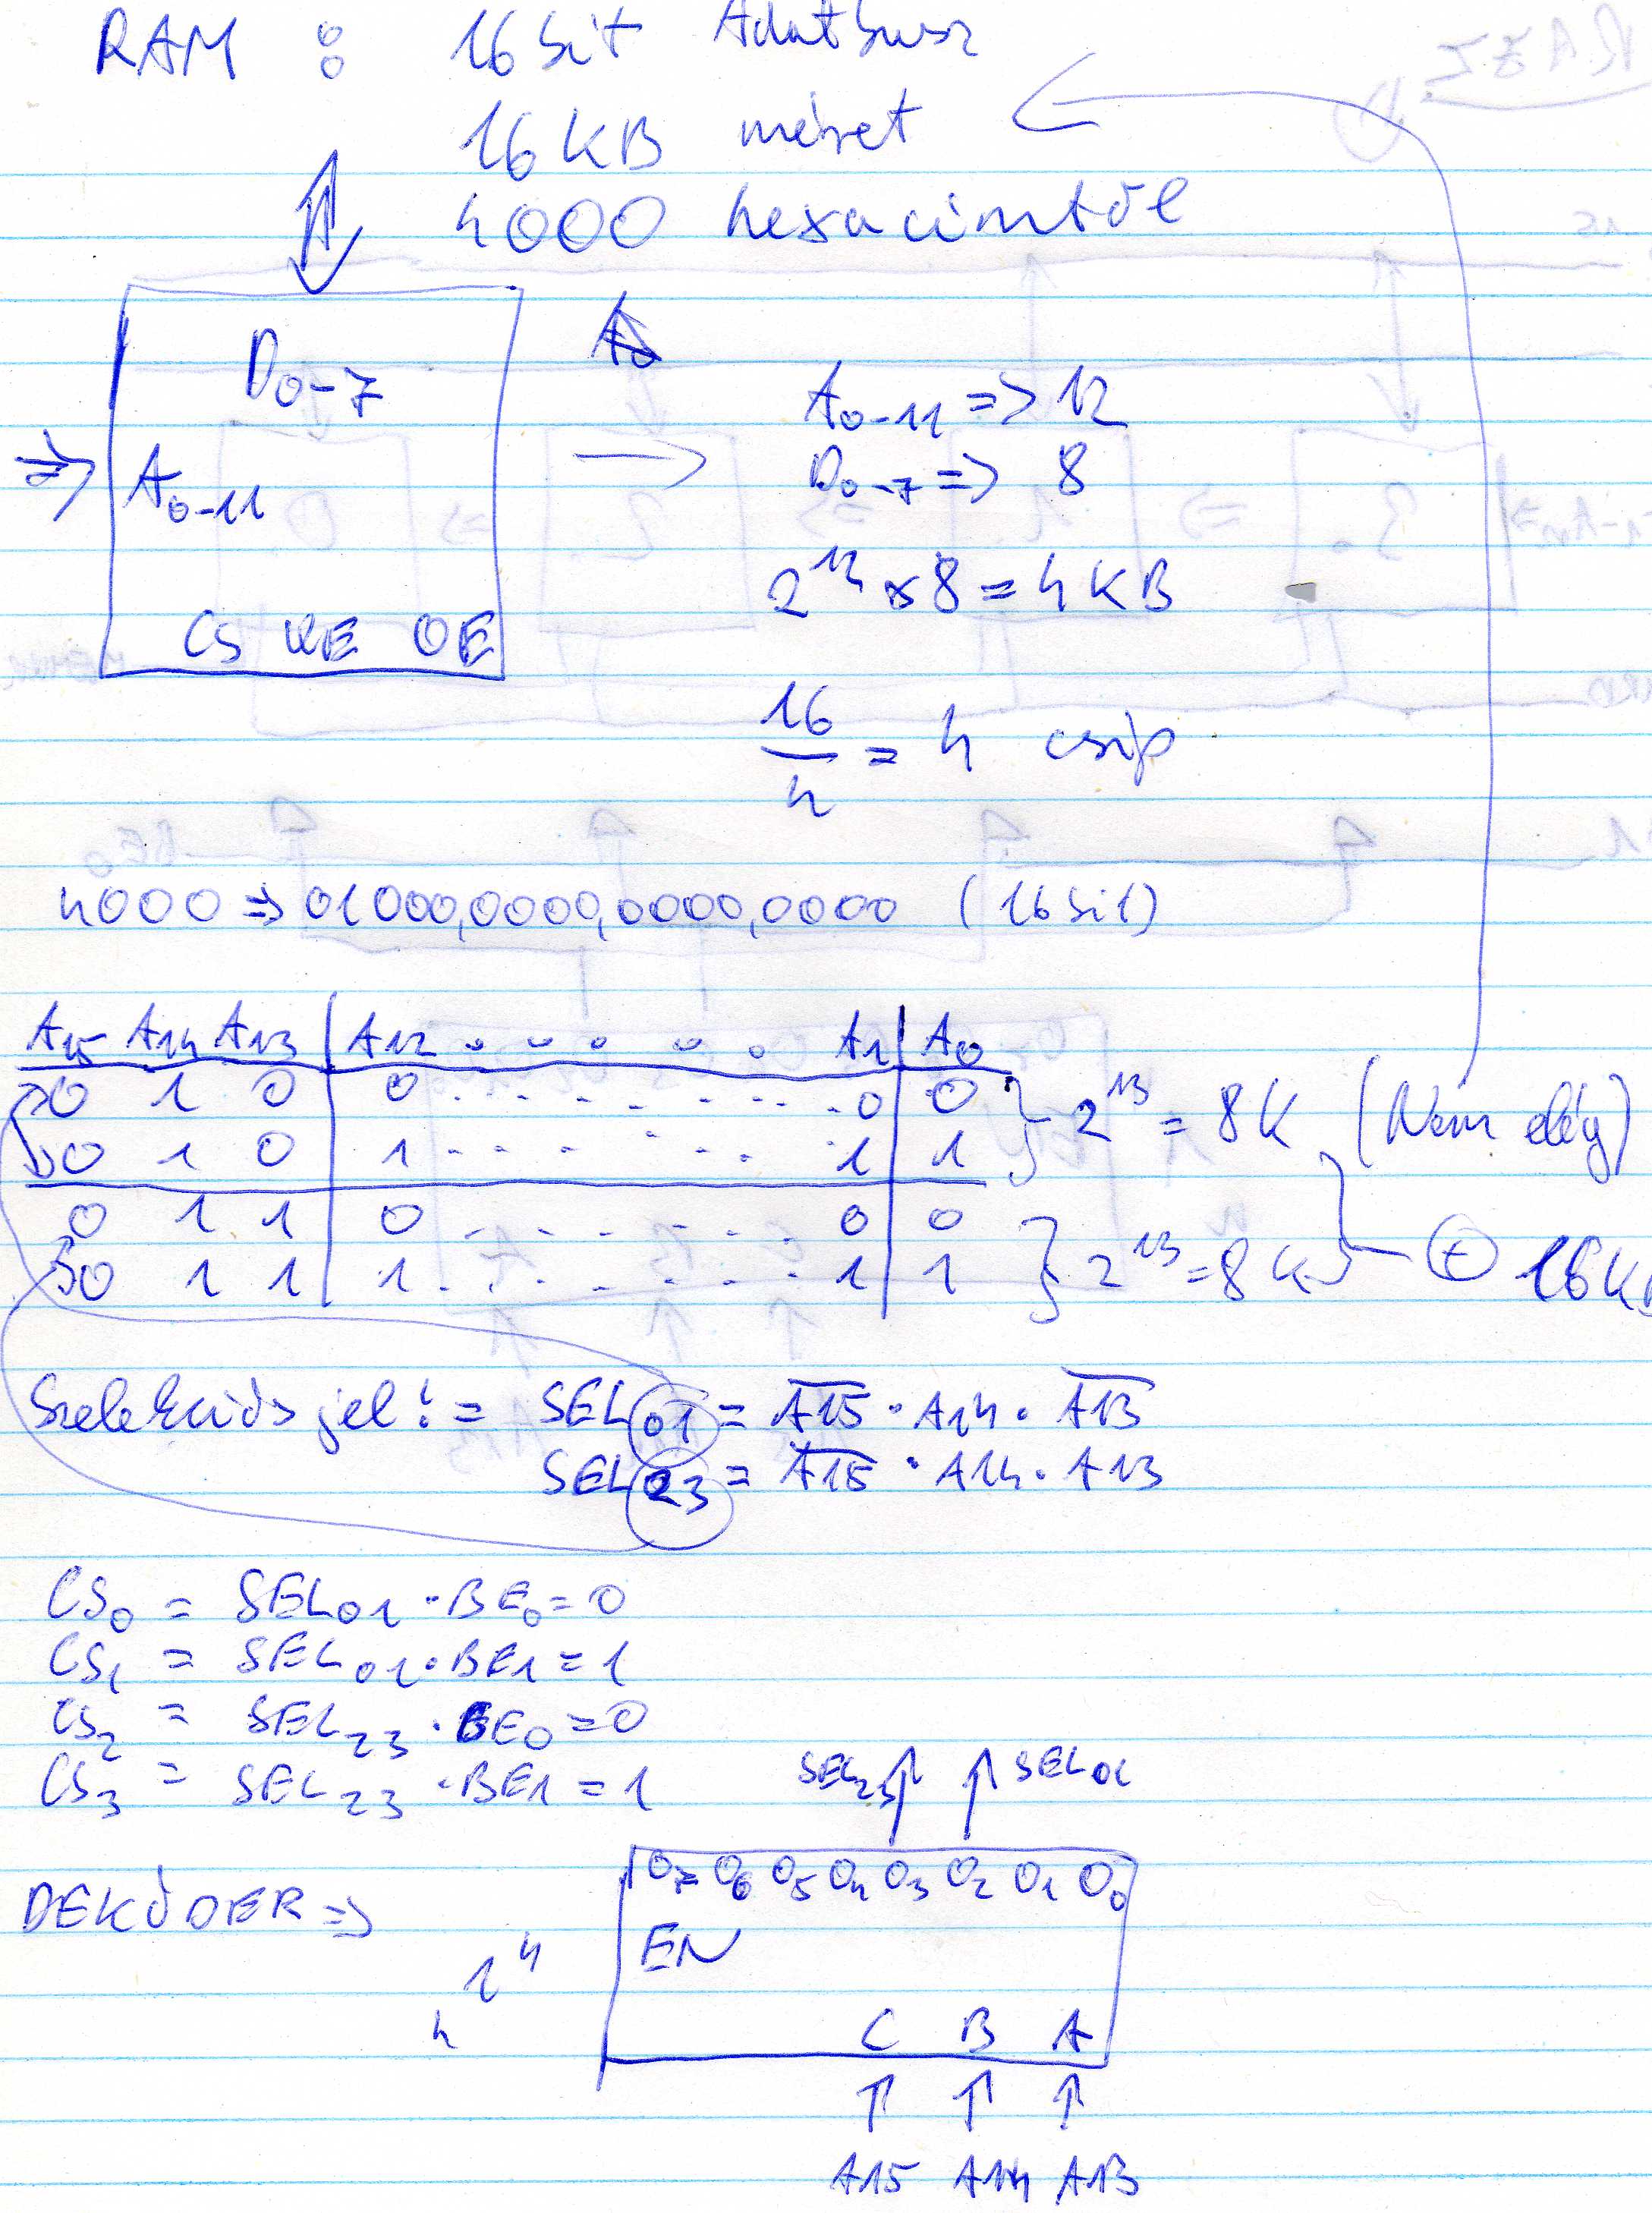 RAM : 16 bit Adatbusz
16 KB méret
4000 hexa címtől
D0-7
A0-11
CS WE OE
A0-11 => 12
D0-7 => 8
2^12 x 8 = 4 KB
16/4 = 4 csip
4000 => 01000,0000,0000,0000 (16 bit)
A15 A14 A13 | A12 . . . . . A1 | A0
0 1 0 | 0 . . . . . . . . 0 | 0 } 2^13 = 8K (Nem elég)
0 1 0 | 1 . . . . . . . 1 | 1
0 1 1 | 0 . . . . . . . 0 | 0 } 2^13 = 8K
0 1 1 | 1 . . . . . . . . 1 | 1
Szelekciós jel: = SEL01 = A̅1̅5̅ · A14 · A̅1̅3̅
SEL23 = A̅1̅5̅ · A14 · A13
CS0 = SEL01 · BE0 = 0
CS1 = SEL01 · BE1 = 1
CS2 = SEL23 · BE0 = 0
CS3 = SEL23 · BE1 = 1
SEL23 SEL01
DEKÓDER =>
O7 O6 O5 O4 O3 O2 O1 O0
EN
C B A
A15 A14 A13